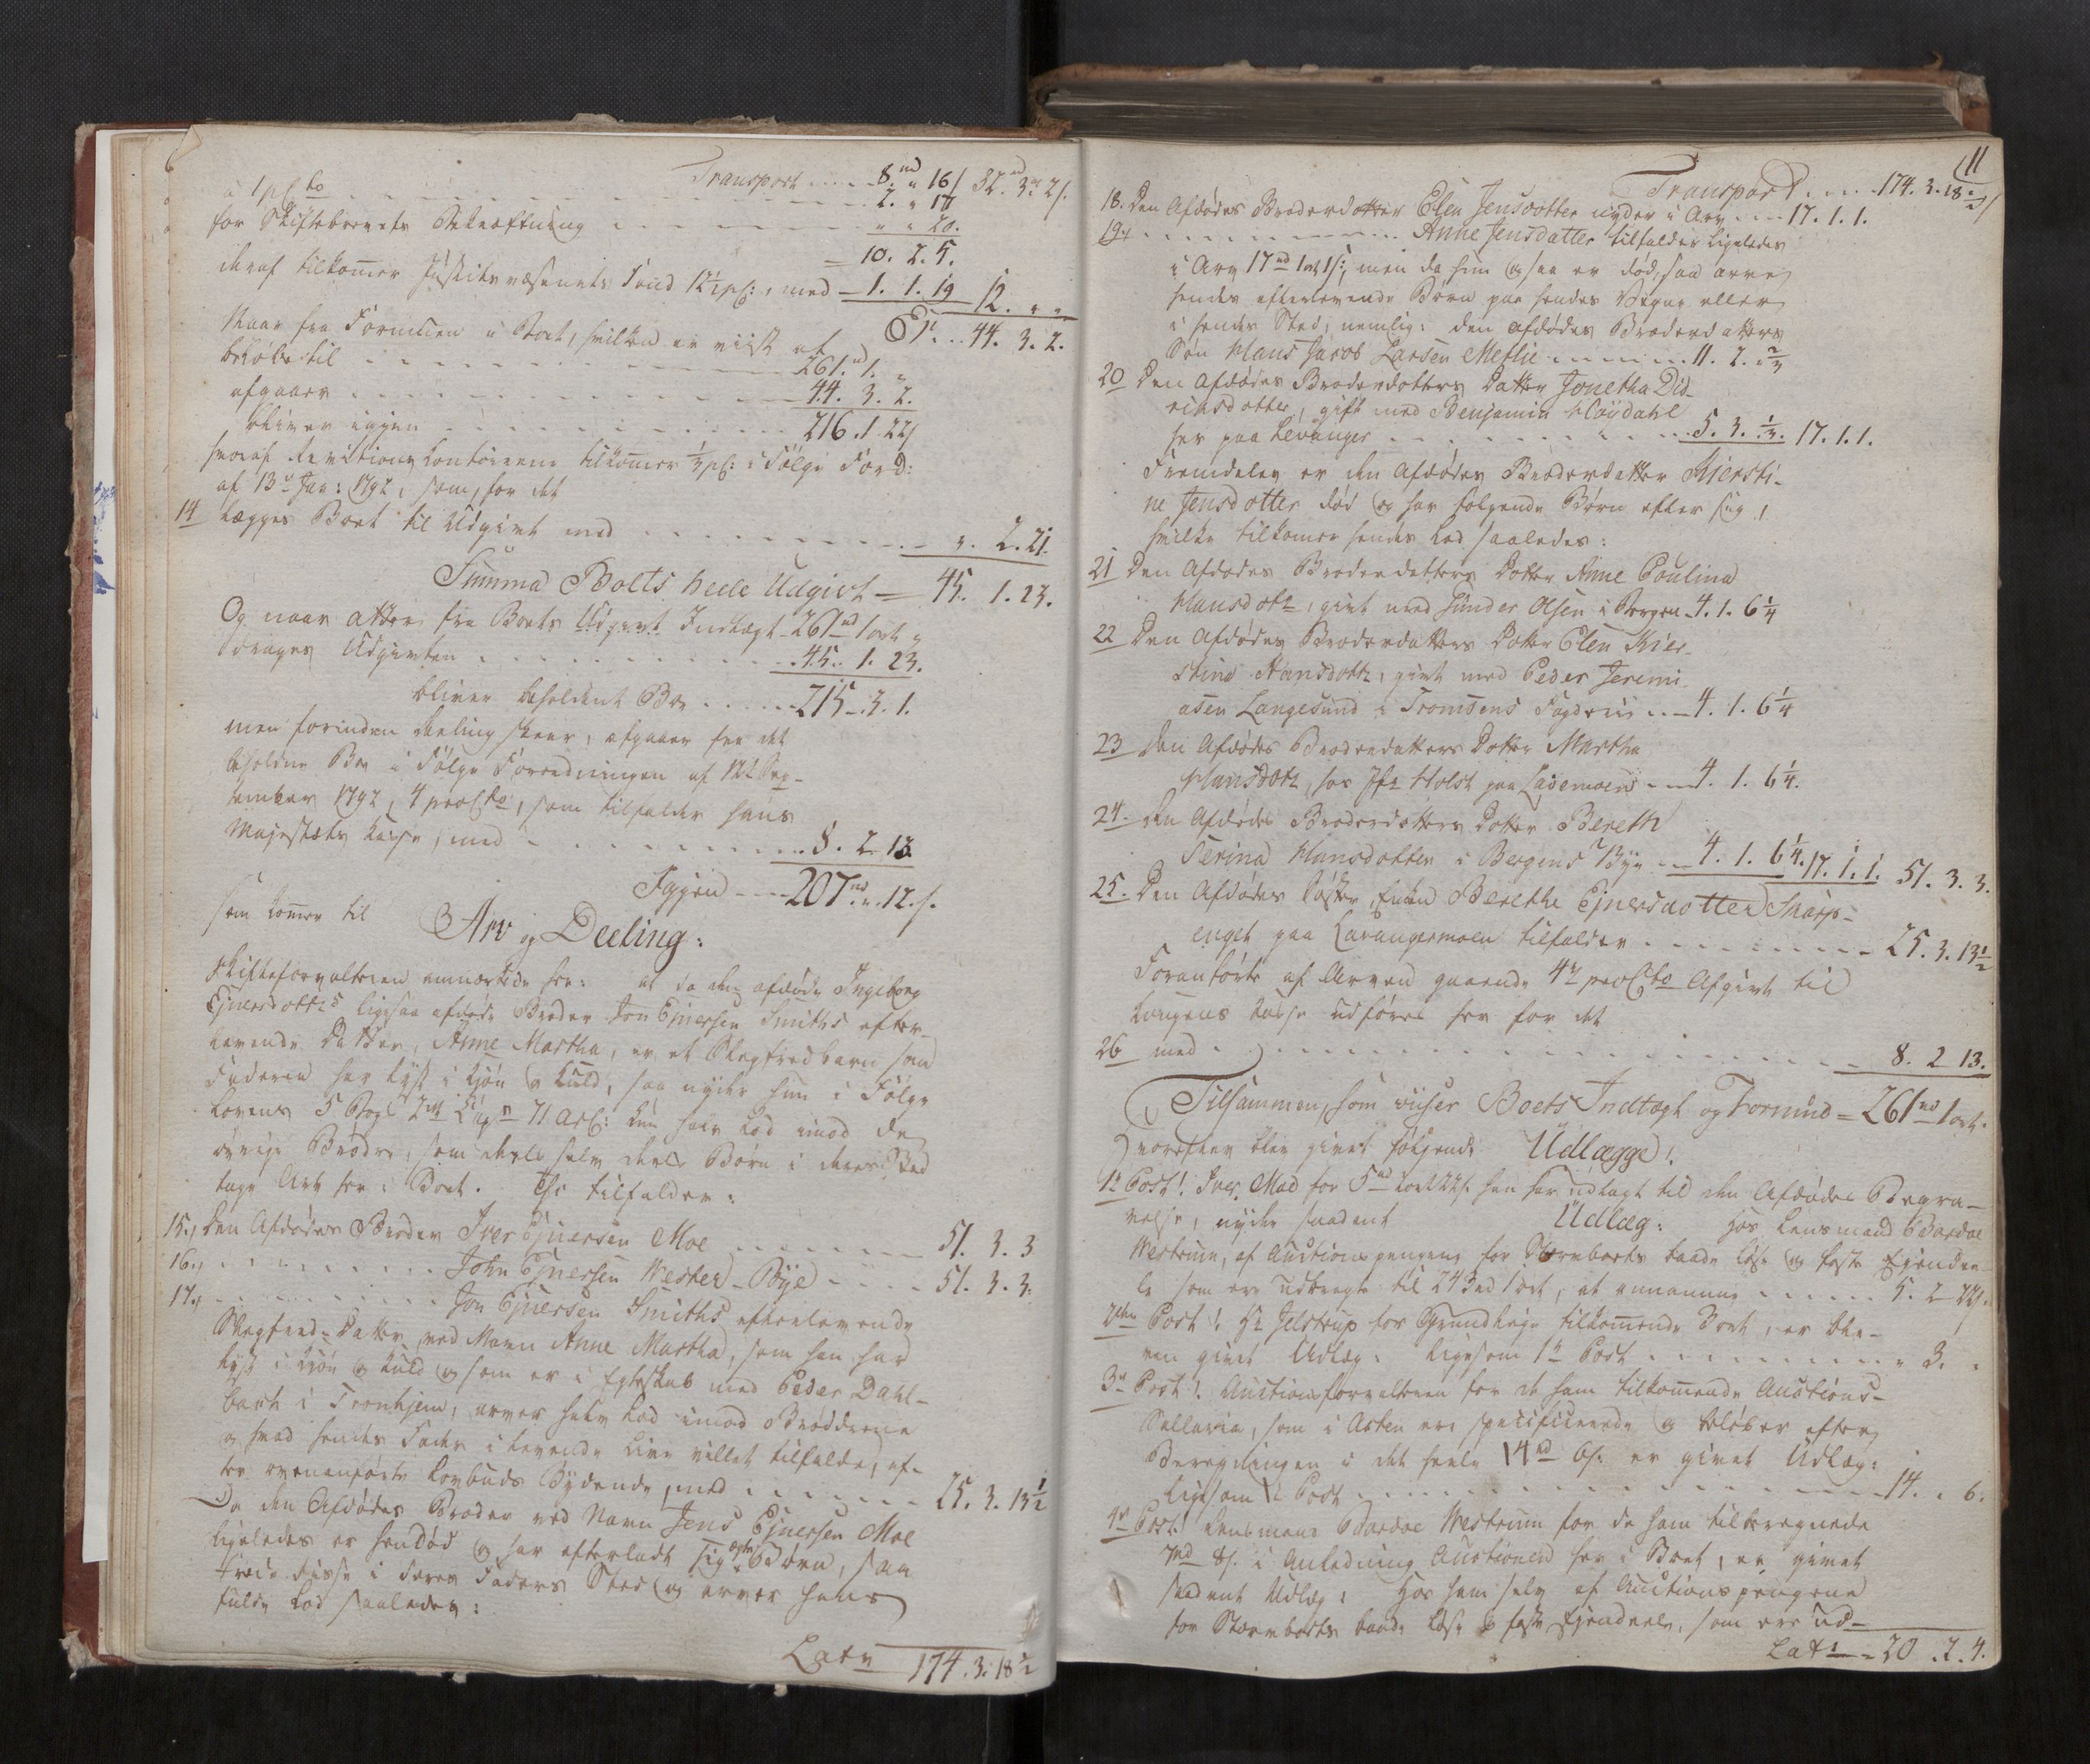 Transport - - - 8 rd " 16 s 32 rd 3 " 2 s.
a 1 pCto - - - - 2. " 17
for Skiftebrevets Bekræftning - - - " " 20.
= 10. 2. 5.
deraf tilkom̅er Justitsvæsenets Fond 12½ pC:, med - 1. 1. 19 12. " "
St. .. 44. 3. 2.
Naar fra Formuen i Boet, hvilken er viist at
beløbe til - - - 261 rd 1. "
afgaaer - - - 44. 3. 2.
bliver igjen - - - 216. 1. 22 s
hvoraf Revitions Contoirerne tilkom̅er ⅓ pC: i Følge Ford:
af 13de Jan: 1792, som, for det
14 lægges Boet til Udgivt med - - - ". 2. 21.
Summa Boets heele Udgivt = 45. 1. 23.
Og naar atter fra Boets Udgivt Indtægt 261 rd 1 ort "
drages Udgivten - - - 45. 1. 23.
bliver beholdent Boe - - - 215. 3. 1.
men forinden Deeling skeer, afgaaer fra det
beholdne Boe i Følge Forordningen af 12te Sep-
tember 1792, 4 proCto, som tilfalder Hans
Majestæts Kasse, med - - - 8. 2. 13
Igjen - - - 207 rd " 12 s.
som kom̅er til
Arv og Deeling:
Skifteforvalteren anmærkede her: at da den afdøde Ingeborg
Ejnersdotters ligesaa afdøde Broder Jon Ejnersen Smiths efter-
levende Datter, Anne Martha, er et Slegfredbarn som
Faderen har lyst i Kjøn og Kuld, saa nyder hun i Følge
Lovens 5 Bogs 2det Cap: 71 Art: kun halv Lod imod de
øvrige Brødre, som deels selv deels Børn i deres Sted
tage Arv her i Boet. Thi tilfalder:
15., Den Afdødes Broder Iver Ejnersen Moe - - - 51. 3. 3
16., - - - John Ejnersen Wester-Bye - - - 51. 3. 3.
17., - - - Jon Ejnersen Smiths efterlevende
Slegfred-Datter ved Navn Anne Martha, som han har
lyst i Kjøn og Kuld og som er i Egteskab med Peder Dahl-
bach i Tronhjem, arver halv Lod imod Brødrene
og hvad hendes Fader i levende Live villet tilfalde, ef-
ter ovenanførte Lovbuds Bydende, med - - - 25. 3. 13½
Da den Afdødes Broder ved Navn Jens Ejnersen Moe
ligeledes er hendød og har efterladt sig Børn, saa
træde disse i deres Faders Sted og arver hans
fulde Lod saaledes:
Latus 174. 3. 18½
11
Transport - - - 174. 3. 18½ s
18. Den Afdødes Broderdotter Elen Jensdotter nyder i Arv - - - 17. 1. 1.
19., - - - Anne Jensdatter tilfalder ligeledes
i Arv 17 rd 1 ort 1 s:, men da hun ogsaa er død, saa arve
hendes efterlevende Børn paa hendes Vegne eller
i hendes Sted, nemlig: den afdødes Broderdatters
Søn Hans Jacob Larsen Meflie - - - 11. 2. " ⅔
20 Den Afdødes Broderdotters Datter Jonetha Did-
riksdotter, gift med Benjamin Høydahl
her paa Levanger - - - 5. 3. " ⅓. 17. 1. 1.
Fremdeles er den Afdødes Broderdatter Kiersti-
ne Jensdotter død og har følgende Børn efter sig,
hvilke tilkomer hendes Lod saaledes:
21 Den Afdødes Broderdatters Dotter Anne Paulina
Hansdotr, givt med Gunder Olsen i Bergen - 4. 1. 6¼
22 Den Afdødes Broderdatters Dotter Elen Kier-
stina Hansdottr, givt med Peder Jeremi-
asen Langesund i Tromsens Fogderie - - 4. 1. 6¼
23 Den Afdødes Broderdatters Dotter Martha
Hansdotr, hos Jfr Holst paa Lademoen - - 4. 1. 6¼.
24. Den Afdødes Broderdotters Dotter Bereth
Serina Hansdotter i Bergens Bye - - 4. 1. 6¼. 17. 1. 1. 51. 3. 3.
25. Den Afdødes Søster, Enken Berethe Ejnersdotter Skarp-
enget paa Lavangermoen tilfalder - - - 25. 3. 13½
Foranførte af Arven gaaende 4 proCto Afgivt til
Kongens Kasse udføres her for det
26 med - - - 8. 2. 13.
Tilsammen, som viiser Boets Indtægt og Formue = 261 rd 1 ort.
Hvorefter blev givet følgende Udlægge:
1te Post: Iver Moe for 5 rd 2 ort 22 s. han har udlagt til den Afdødes Begra-
velse, nyder saadant Udlæg: Hos Lensmand Bardoe
Westrum, af Auctionspengene for Stervboets baade løse og faste Ejende-
le som ere udbragte til 243 rd 1 ort, at annamme - - - 5. 2. 22 s.
2den Post: Hr Jelstrup for Grundleje tilkommende 3 ort, er ble-
ven givet Udlæg: ligesom 1te Post - - - " 3. "
3de Post: Auctionsforvalteren for de ham tilkommende Auctions-
Sallaria, som i Acten ere specificerede og beløber efter
Beregningen i det heele 14 rd 6 s. er givet Udlæg:
ligesom 1te Post - - - 14. " 6.
4de Post: Lensmand Bardoe Westrum for de ham tilberegnede
7 rd 8 s. i Anledning Auctionen her i Boet, er givet
saadant Udlæg: Hos ham selv af Auctionspengene
for Stervboets baade løse og faste Ejendeele, som ere ud-
Lats - - 20. 2. 4.